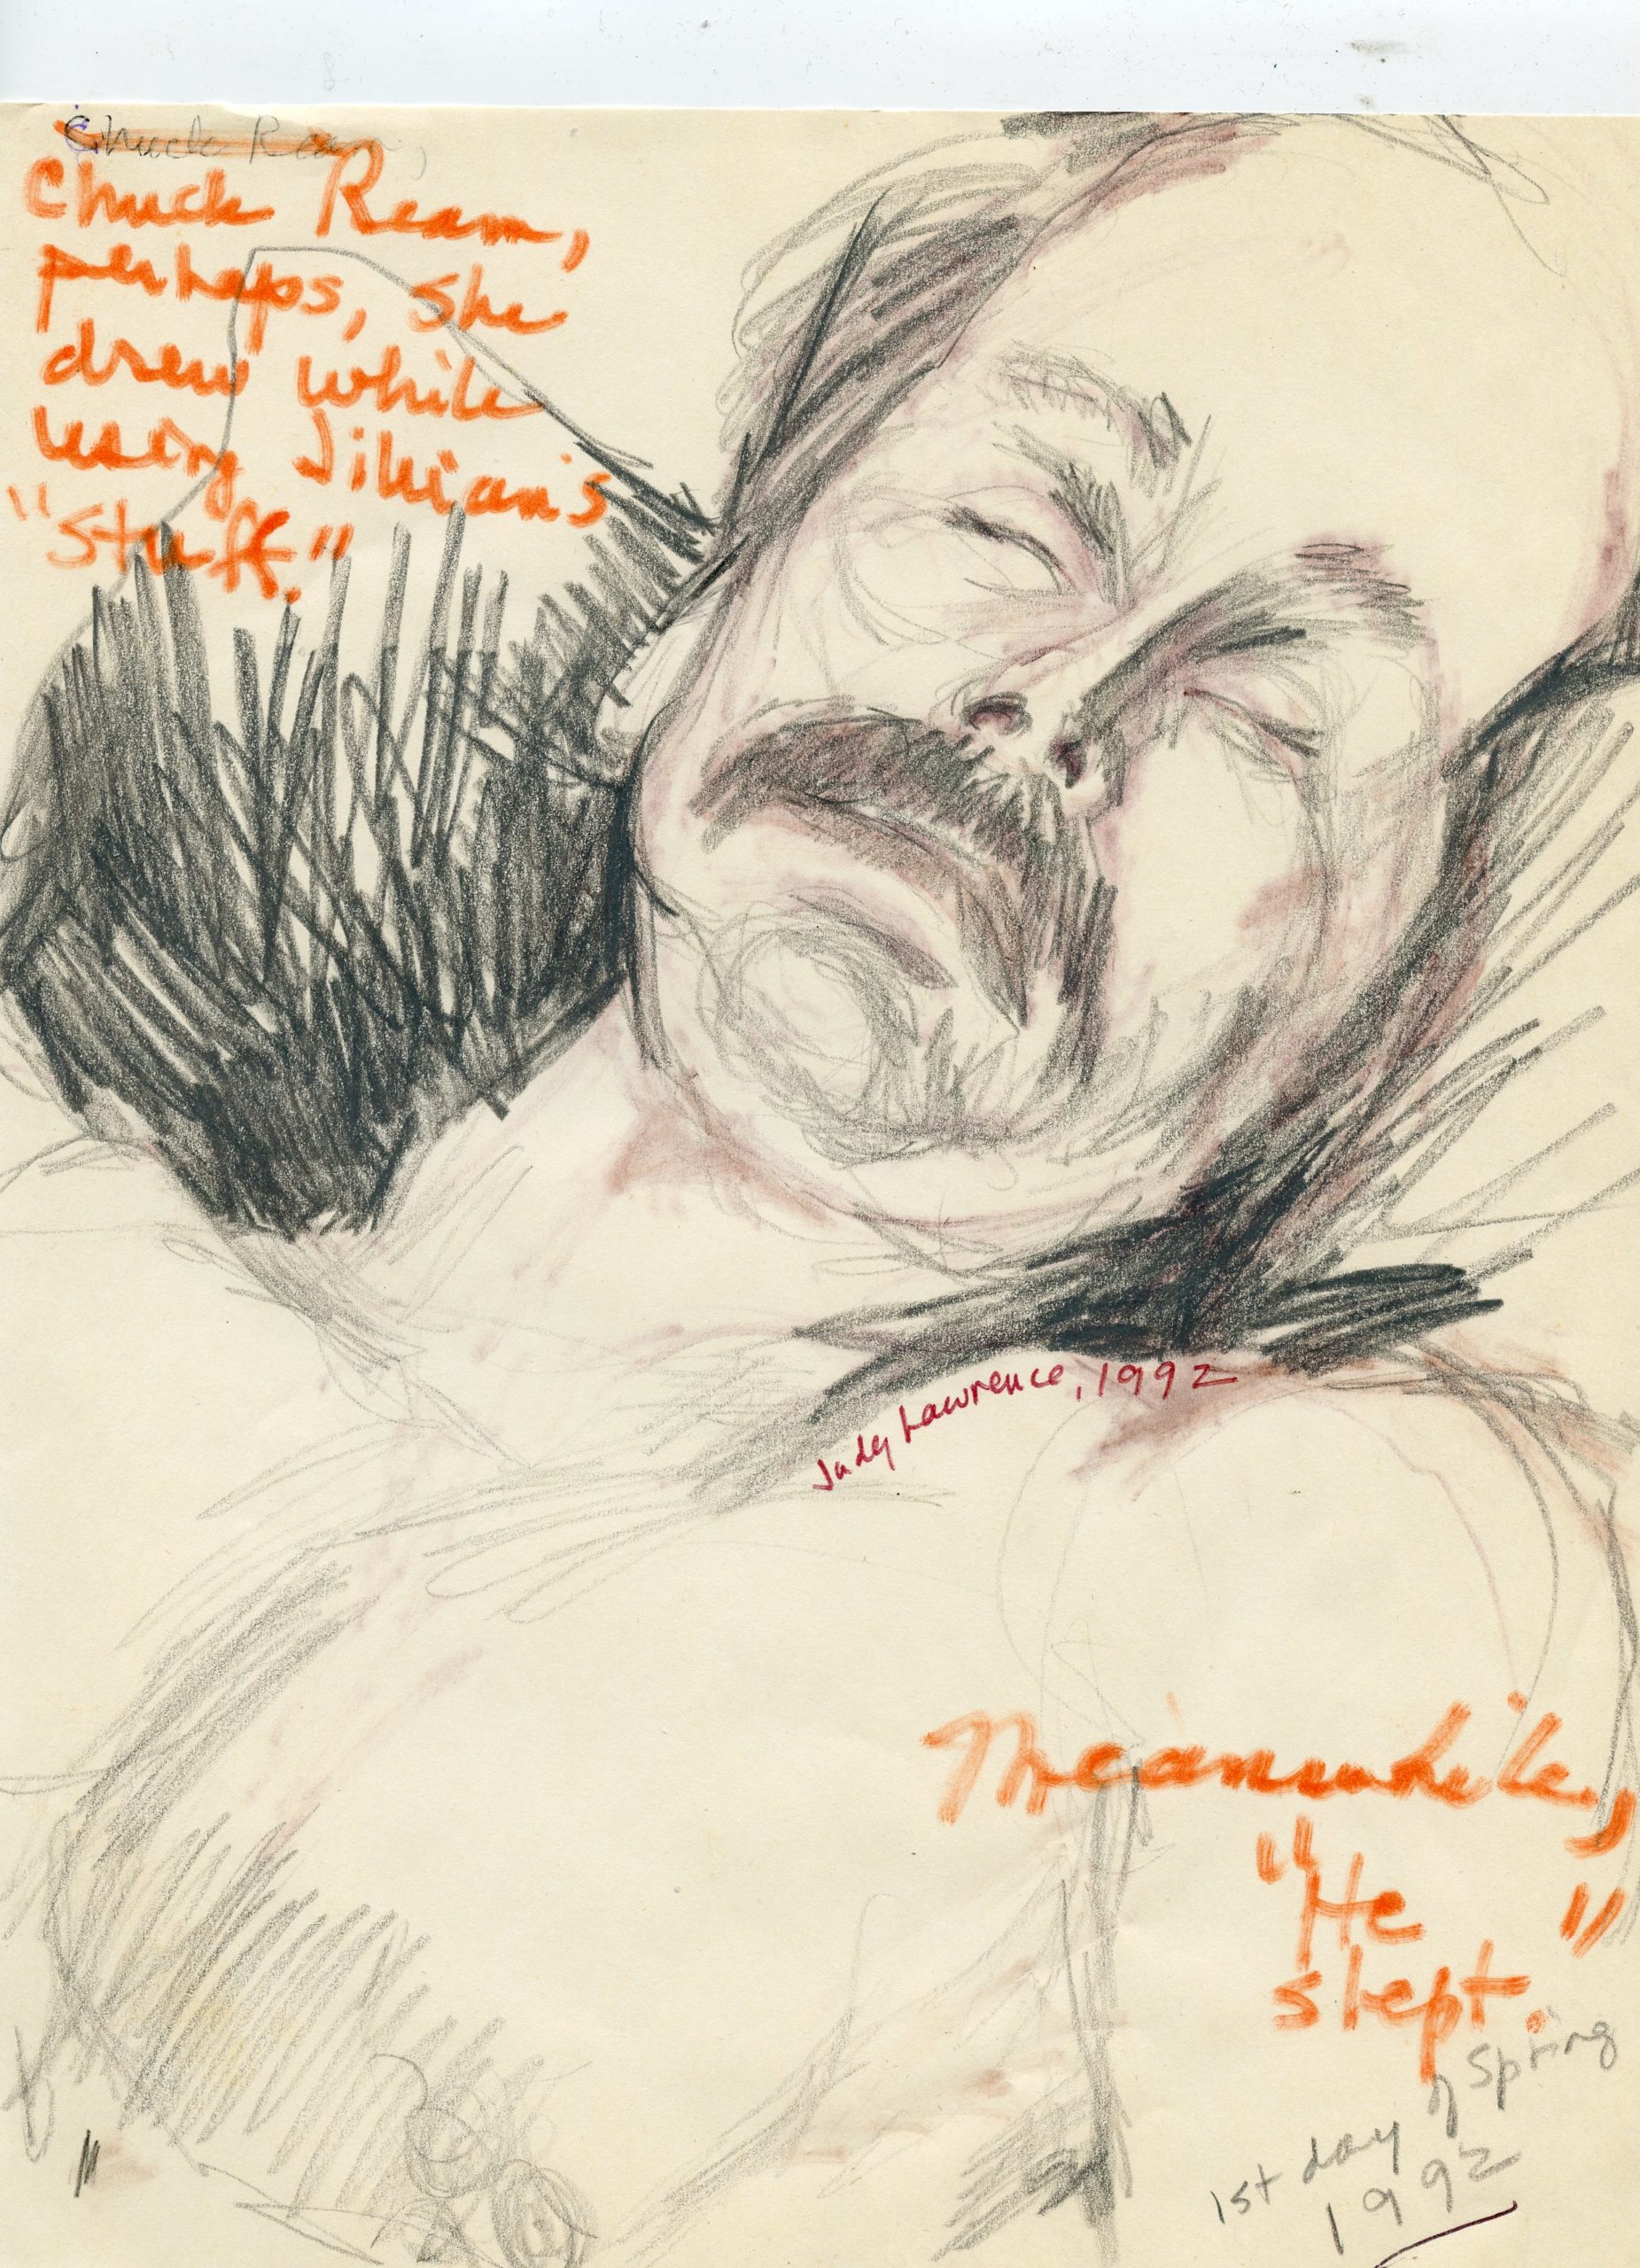 Chuck Ream,
Chuck Ream,
perhaps, she
drew while
using Jillian's
"stuff."
Judy Lawrence, 1992
Meanwhile,
"He
slept."
1st day of Spring
1992